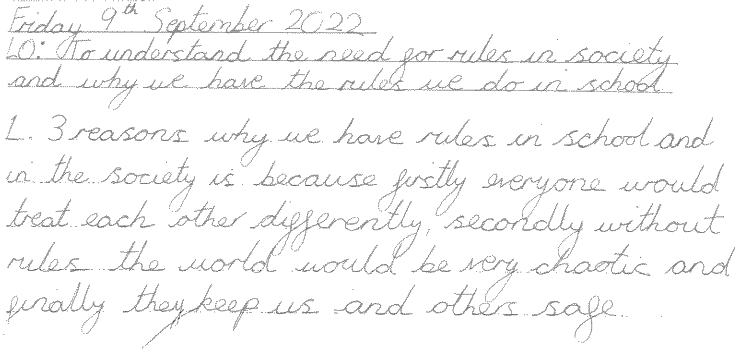 Friday 9th September 2022
LO: To understand the need for rules in society
and why we have the rules we do in school
1. 3 reasons why we have rules in school and
in the society is because firstly everyone would
treat each other differently, secondly without
rules the world would be very chaotic and
finally they keep us and others safe.